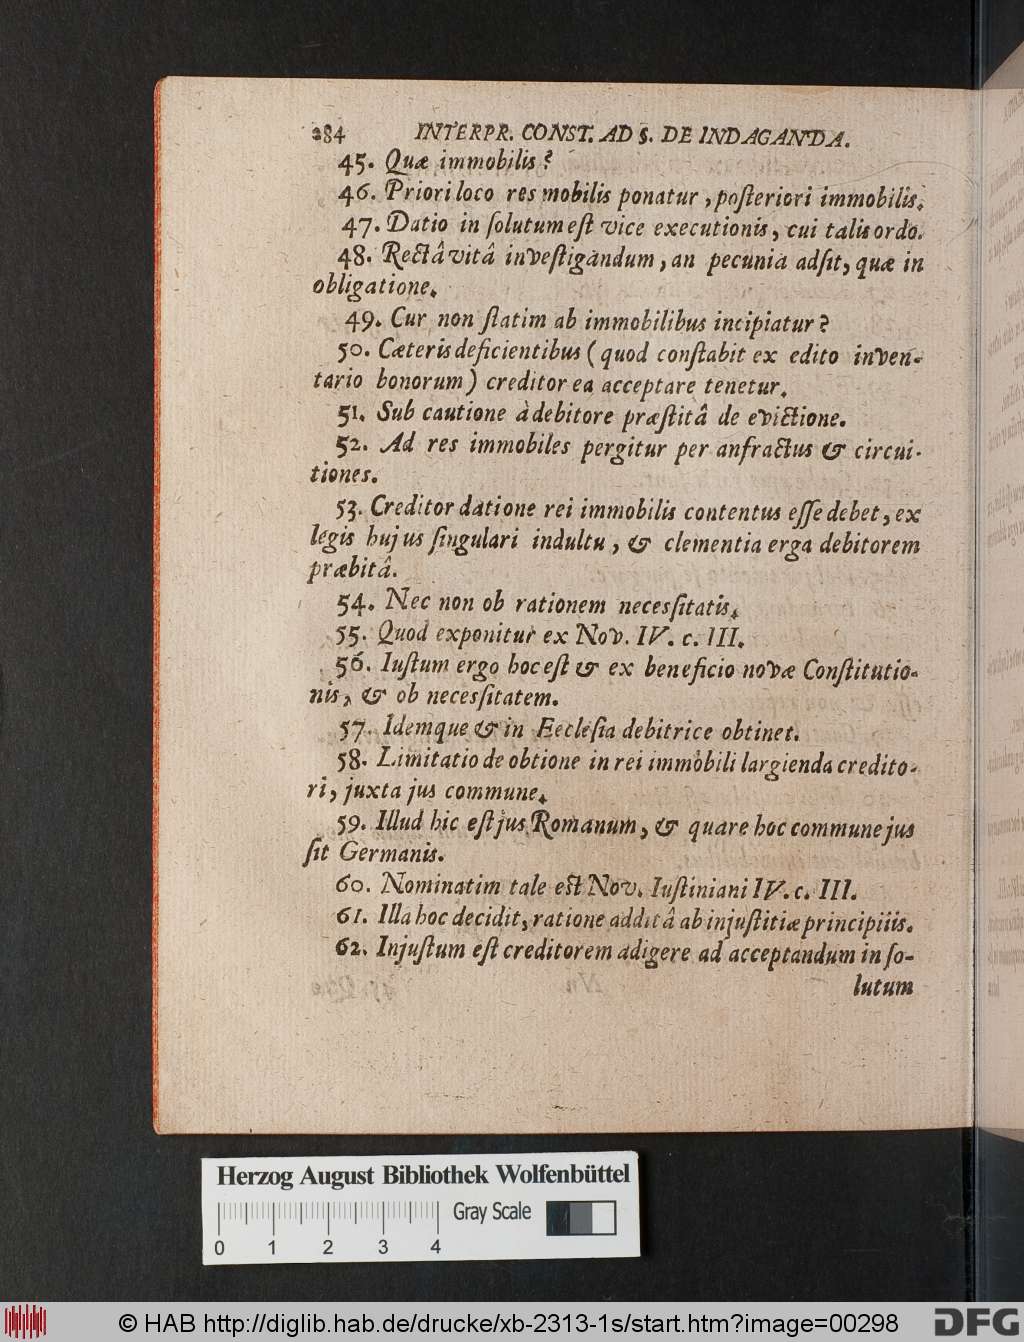 284 INTERPR. CONST. AD §. DE INDAGANDA.
45. Quæ immobilis?
46. Priori loco res mobilis ponatur, poſteriori immobilis.
47. Datio in ſolutum eſt vice executionis, cui talis ordo.
48. Rectâ vitâ inveſtigandum, an pecunia adſit, quæ in
obligatione.
49. Cur non ſtatim ab immobilibus incipiatur?
50. Cæteris deficientibus (quod conſtabit ex edito inven-
tario bonorum) creditor ea acceptare tenetur.
51. Sub cautione à debitore præſtitâ de evictione.
52. Ad res immobiles pergitur per anfractus & circui-
tiones.
53. Creditor datione rei immobilis contentus eſſe debet, ex
legis hujus ſingulari indultu, & clementia erga debitorem
præbitâ.
54. Nec non ob rationem necesſitatis.
55. Quod exponitur ex Nov. IV. c. III.
56. Iuſtum ergo hoc eſt & ex beneficio novæ Conſtitutio-
nis, & ob necesſitatem.
57. Idemque & in Eccleſia debitrice obtinet.
58. Limitatio de obtione in rei immobili largienda credito-
ri, juxta jus commune.
59. Illud hic eſt jus Romanum, & quare hoc commune jus
ſit Germanis.
60. Nominatim tale est Nov. Iuſtiniani IV. c. III.
61. Illa hoc decidit, ratione additâ ab injuſtitiæ principiiis.
62. Injuſtum eſt creditorem adigere ad acceptandum in ſo-
lutum
Herzog August Bibliothek Wolfenbüttel
Gray Scale
0 1 2 3 4
© HAB http://diglib.hab.de/drucke/xb-2313-1s/start.htm?image=00298
DFG